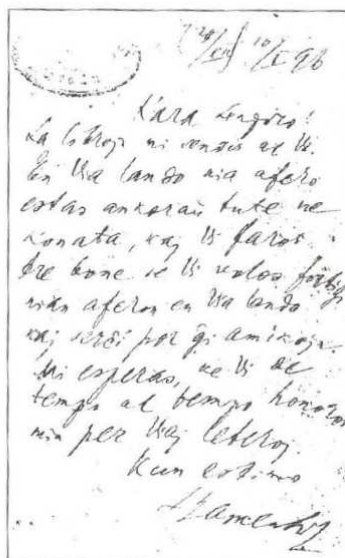 Kara Sinjoro!
La librojn mi sendis al Vi.
En Via lando nia afero
estas ankoraŭ tute ne
konata, kaj Vi faros
tre bone se Vi volos fortigi
nian aferon en Via lando
kaj serĉi por ĝi amikojn.
Mi esperas, ke Vi de
tempo al tempo honoros
min per Viaj leteroj.
Kun estimo
LZamenhof